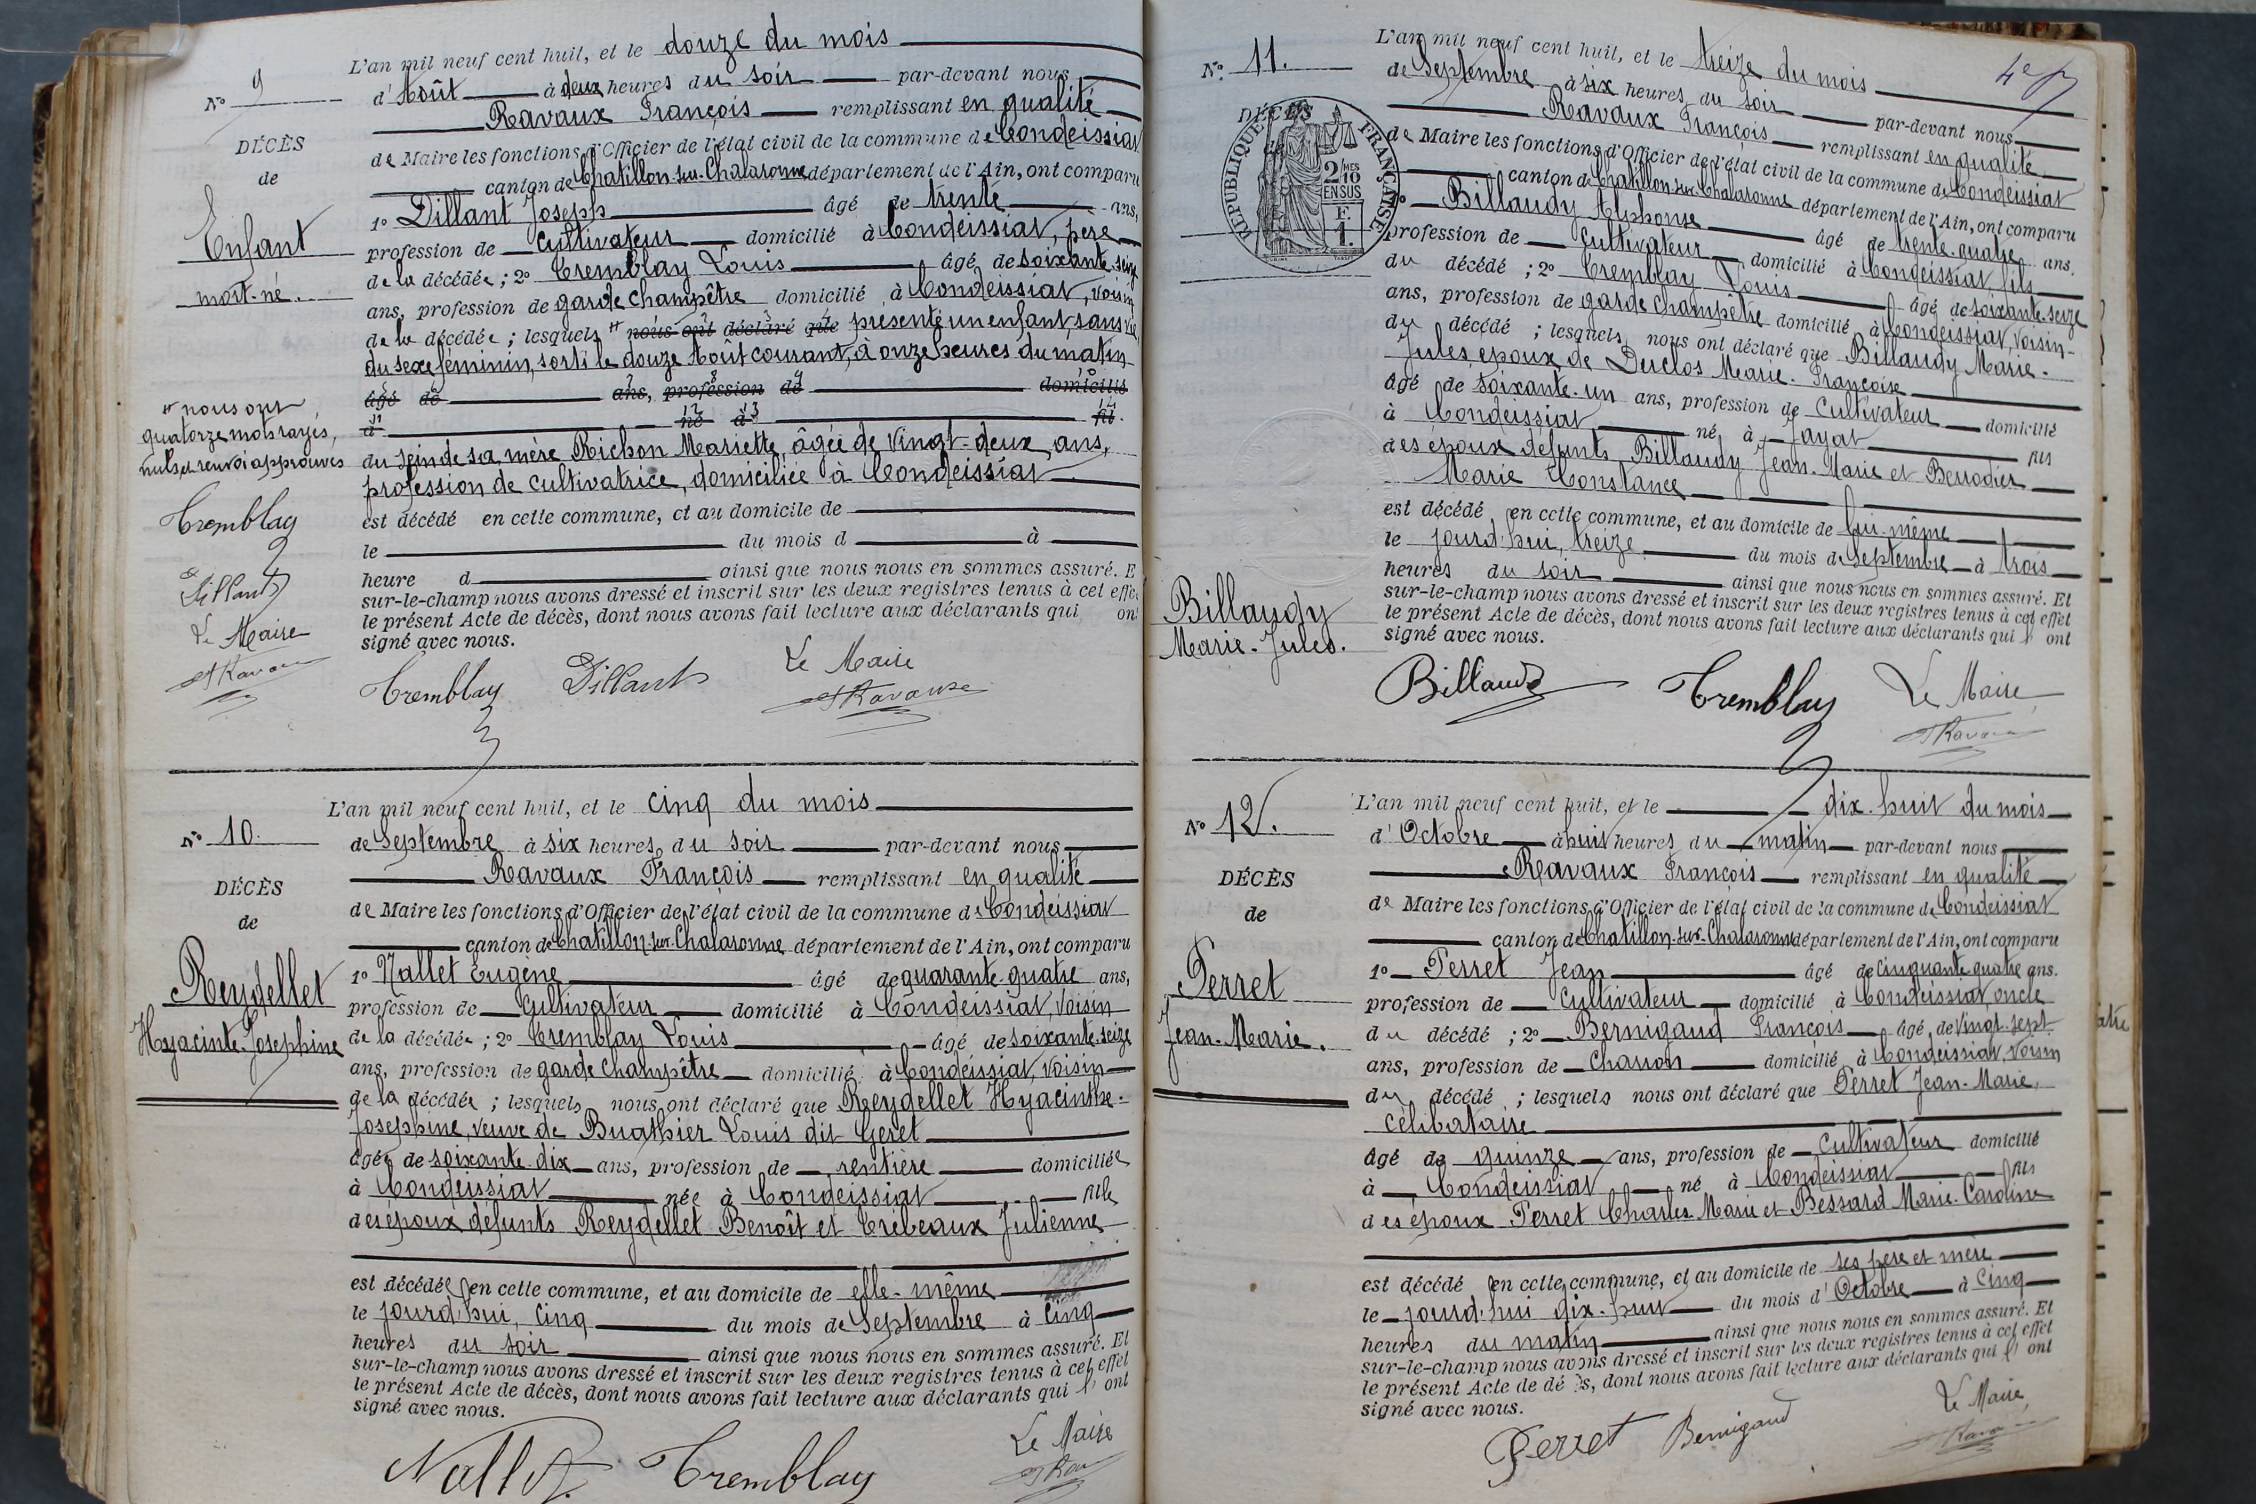 L'an mil neuf cent huit, et le douze du mois
N° 9
d'Août à deux heures du soir par-devant nous
Ravaux François remplissant en qualité
DÉCÈS
de Maire les fonctions d'Officier de l'état civil de la commune de Condeissiat
de
canton de Châtillon-sur-Chalaronne département de l'Ain, ont comparu
1° Dillant Joseph âgé de trente ans,
Enfant
profession de cultivateur domicilié à Condeissiat, père
de la décédée ; 2° Tremblay Louis âgé de soixante-seize
mort-né.
ans, profession de garde champêtre domicilié à Condeissiat, voisin
de la décédée ; lesquels nous ont déclaré que présenté un enfant sans vie
du sexe féminin, sorti le douze Août courant, à onze heures du matin
âgé de ans, profession de domicilié
à né à fil
nous ont
quatorze mots rayés,
nuls, et renvoi approuvés
du sein de sa mère Richon Mariette, âgée de vingt-deux ans,
profession de cultivatrice, domiciliée à Condeissiat
est décédé en cette commune, et au domicile de
le du mois d à
heure d ainsi que nous nous en sommes assuré. E
sur-le-champ nous avons dressé et inscrit sur les deux registres tenus à cet effe
le présent Acte de décès, dont nous avons fait lecture aux déclarants qui ont
signé avec nous.
Tremblay
Dillant
Le Maire
Ravaux
Tremblay Dillant Le Maire
Ravaux
L'an mil neuf cent huit, et le cinq du mois
N° 10.
de Septembre à six heures du soir par-devant nous
Ravaux François remplissant en qualité
DÉCÈS
de Maire les fonctions d'Officier de l'état civil de la commune de Condeissiat
de
canton de Châtillon-sur-Chalaronne département de l'Ain, ont comparu
1° Nallet Eugène âgé de quarante-quatre ans,
Reydellet
profession de cultivateur domicilié à Condeissiat, voisin
Hyacinte-Josephine
de la décédée ; 2° Tremblay Louis âgé de soixante-seize
ans, profession de garde champêtre domicilié à Condeissiat, voisin
de la décédée ; lesquels nous ont déclaré que Reydellet Hyacinthe-
Josephine, veuve de Buathier Louis dit Geret
âgée de soixante-dix ans, profession de rentière domiciliée
à Condeissiat née à Condeissiat fille
des époux défunts Reydellet Benoît et Trébeaux Julienne
est décédée en cette commune, et au domicile de elle-même
le jourd'hui, cinq du mois de Septembre à cinq
heures du soir ainsi que nous nous en sommes assuré. Et
sur-le-champ nous avons dressé et inscrit sur les deux registres tenus à cet effet
le présent Acte de décès, dont nous avons fait lecture aux déclarants qui ont
signé avec nous.
Nallet Tremblay Le Maire
4e
L'an mil neuf cent huit, et le treize du mois
N° 11.
de Septembre à six heures du soir par-devant nous
Ravaux François remplissant en qualité
DÉCÈS
de
RÉPUBLIQUE FRANÇAISE
2/10 MES
EN SUS
F.
1.
de Maire les fonctions d'Officier de l'état civil de la commune de Condeissiat
canton de Châtillon-sur-Chalaronne département de l'Ain, ont comparu
1° Billaudy Alphonse âgé de trente-quatre ans.
profession de cultivateur domicilié à Condeissiat, fils
du décédé ; 2° Tremblay Louis âgé de soixante-seize
ans, profession de garde champêtre domicilié à Condeissiat, voisin
du décédé ; lesquels nous ont déclaré que Billaudy Marie-
Jules, époux de Duclos Marie-Françoise
âgé de soixante-un ans, profession de cultivateur domicilié
à Condeissiat né à Jayat fils
des époux défunts Billaudy Jean-Marie et Berrodier
Marie Constance
est décédé en cette commune, et au domicile de lui-même
le jourd'hui, treize du mois de Septembre à trois
heures du soir ainsi que nous nous en sommes assuré. Et
sur-le-champ nous avons dressé et inscrit sur les deux registres tenus à cet effet
le présent Acte de décès, dont nous avons fait lecture aux déclarants qui ont
signé avec nous.
Billaudy
Marie-Jules.
Billaudy Tremblay Le Maire
Ravaux
L'an mil neuf cent huit, et le dix-huit du mois
N° 12.
d'Octobre à huit heures du matin par-devant nous
Ravaux François remplissant en qualité
DÉCÈS
de Maire les fonctions d'Officier de l'état civil de la commune de Condeissiat
de
canton de Châtillon-sur-Chalaronne département de l'Ain, ont comparu
1° Perret Jean âgé de cinquante-quatre ans.
Perret
profession de cultivateur domicilié à Condeissiat, oncle
Jean-Marie.
du décédé ; 2° Bernigaud François âgé de vingt-sept
ans, profession de charron domicilié à Condeissiat, voisin
du décédé ; lesquels nous ont déclaré que Perret Jean-Marie,
célibataire
âgé de quinze ans, profession de cultivateur domicilié
à Condeissiat né à Condeissiat fils
des époux Perret Charles-Marie et Bessard Marie-Caroline
est décédé en cette commune, et au domicile de ses père et mère
le jourd'hui dix-huit du mois d'Octobre à cinq
heures du matin ainsi que nous nous en sommes assuré. Et
sur-le-champ nous avons dressé et inscrit sur les deux registres tenus à cet effet
le présent Acte de décès, dont nous avons fait lecture aux déclarants qui ont
signé avec nous.
Perret Bernigaud Le Maire